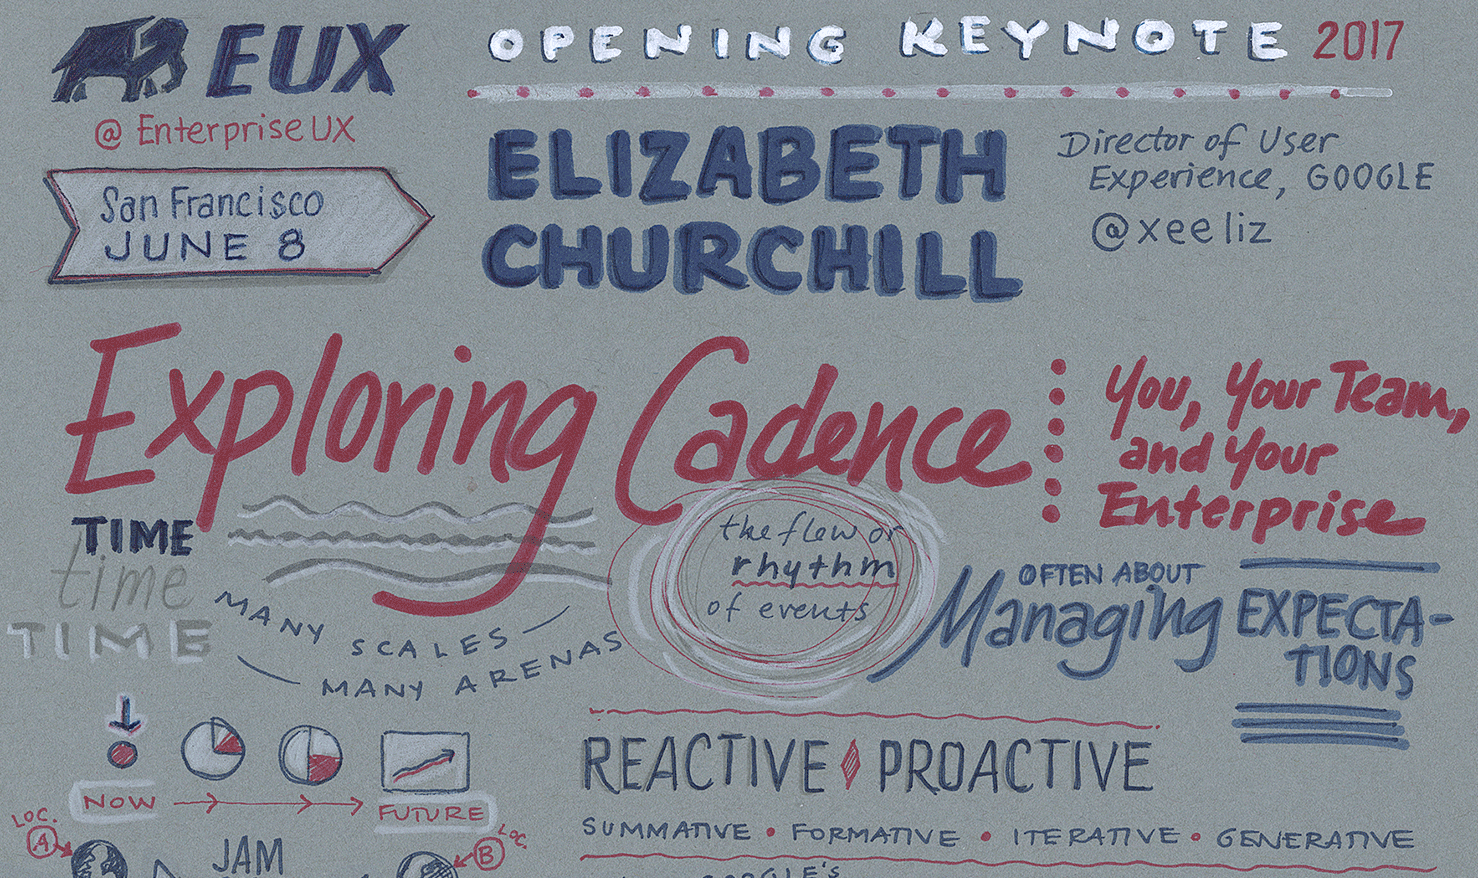 EUX
@EnterpriseUX
San Francisco
JUNE 8
OPENING KEYNOTE 2017
ELIZABETH
CHURCHILL
Director of User
Experience, GOOGLE
@xeeliz
Exploring Cadence
You, Your Team,
and Your
Enterprise
TIME
time
TIME
MANY SCALES
MANY ARENAS
the flow or
rhythm
of events
OFTEN ABOUT
Managing EXPECTA-
TIONS
NOW
FUTURE
LOC.
A
JAM
LOC.
B
REACTIVE PROACTIVE
SUMMATIVE • FORMATIVE • ITERATIVE • GENERATIVE
GOOGLE'S